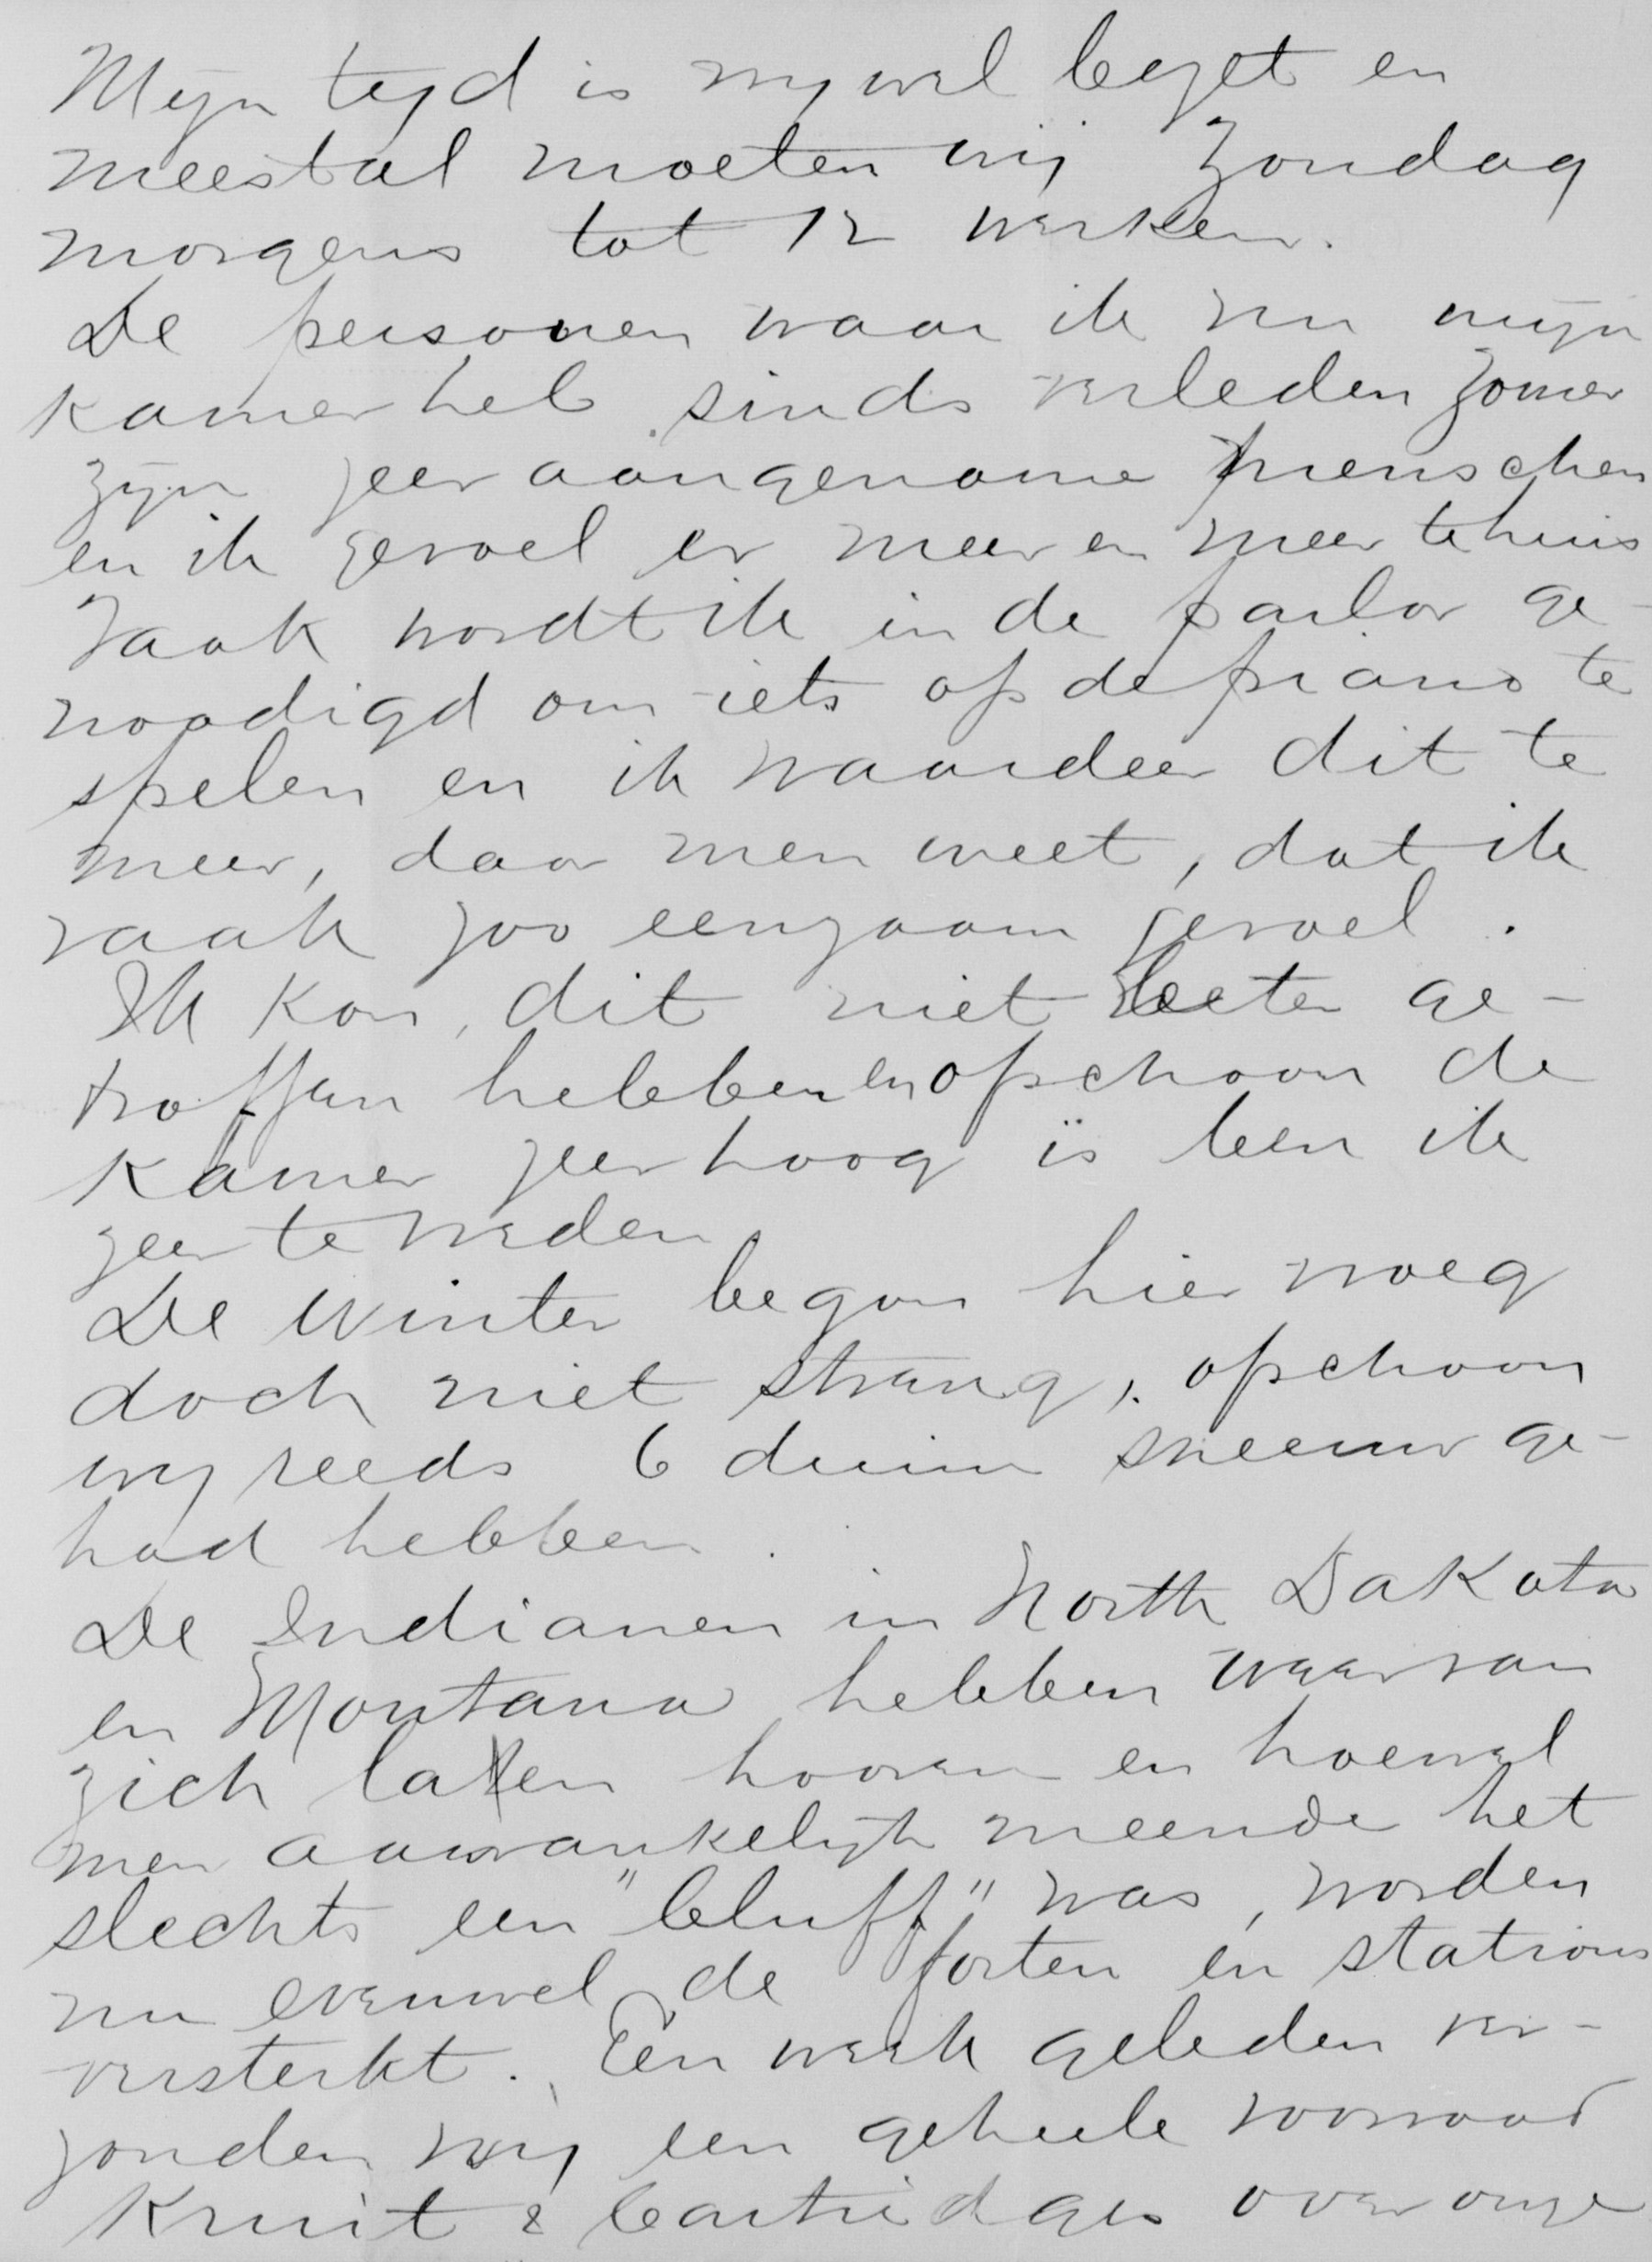 Mijn tijd is mij wel bezet en
meestal moeten wij Zondag
morgens tot 12 werken.
De personen waar ik nu mijn
kamer heb sinds verleden zomer
zijn zeer aangename menschen
en ik gevoel er meer en meer tehuis
Vaak wordt ik in de parlor ge-
noodigd om iets op de piano te
spelen en ik waardeer dit te
meer, daar men weet, dat ik
vaak zoo eenzaam gevoel.
Ik kon dit niet beter ge-
troffen hebben en opschoon de
Kamer zeer hoog is ben ik
zeer te vreden
De Winter begon hier vroeg
doch niet streng, opschoon
wij reeds 6 duim sneeuw ge-
had hebben.
De Indianen in North Dakota
en Montana hebben weer van
zich laten hooren en hoewel
men aanvankelijk meende het
slechts een "bluff" was, worden
nu evenwel de forten en stations
versterkt. Een week geleden ver-
zonden wij een geheele voorraad
Kruit & Cartridges over onze